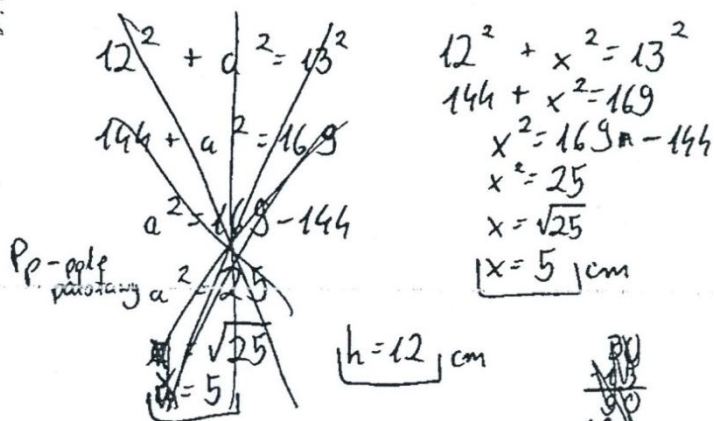 12² + a² = 13²
144 + a² = 169
a² = 169 - 144
Pp - pole
podstawy
a² = 25
= √25
x = 5
12² + x² = 13²
144 + x² = 169
x² = 169 - 144
x² = 25
x = √25
x = 5 cm
h = 12 cm